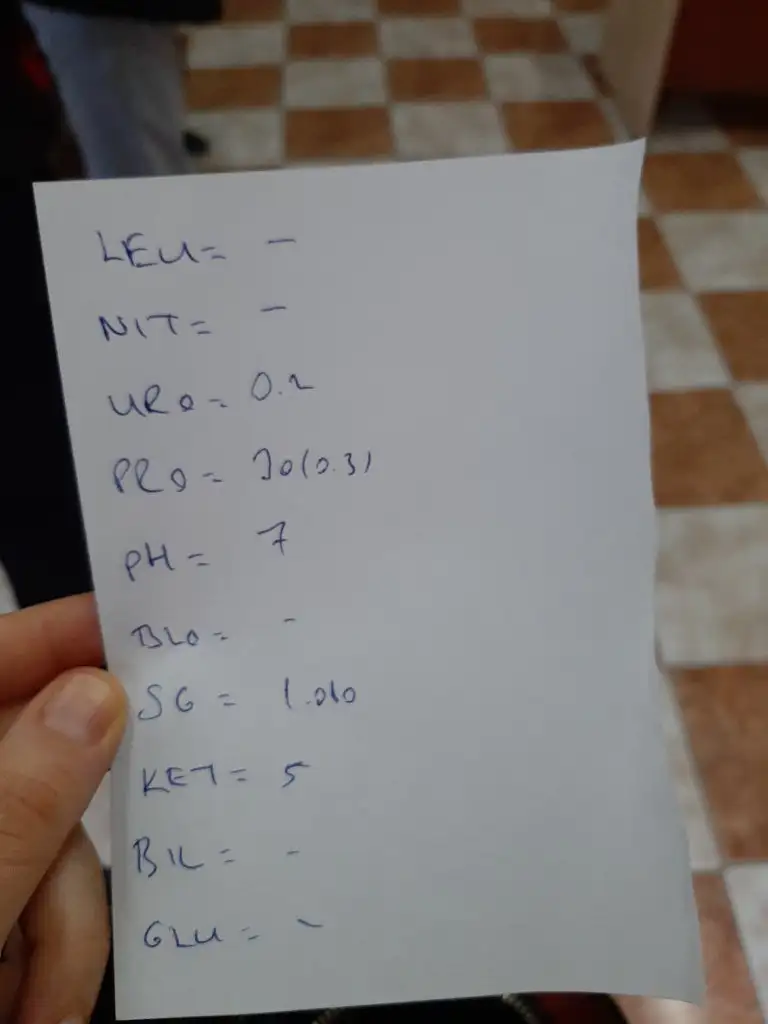 LEU= -
NIT= -
URO= 0.2
PRO= 30(0.3)
PH= 7
BLO= -
SG= 1.010
KET= 5
BIL= -
GLU= -